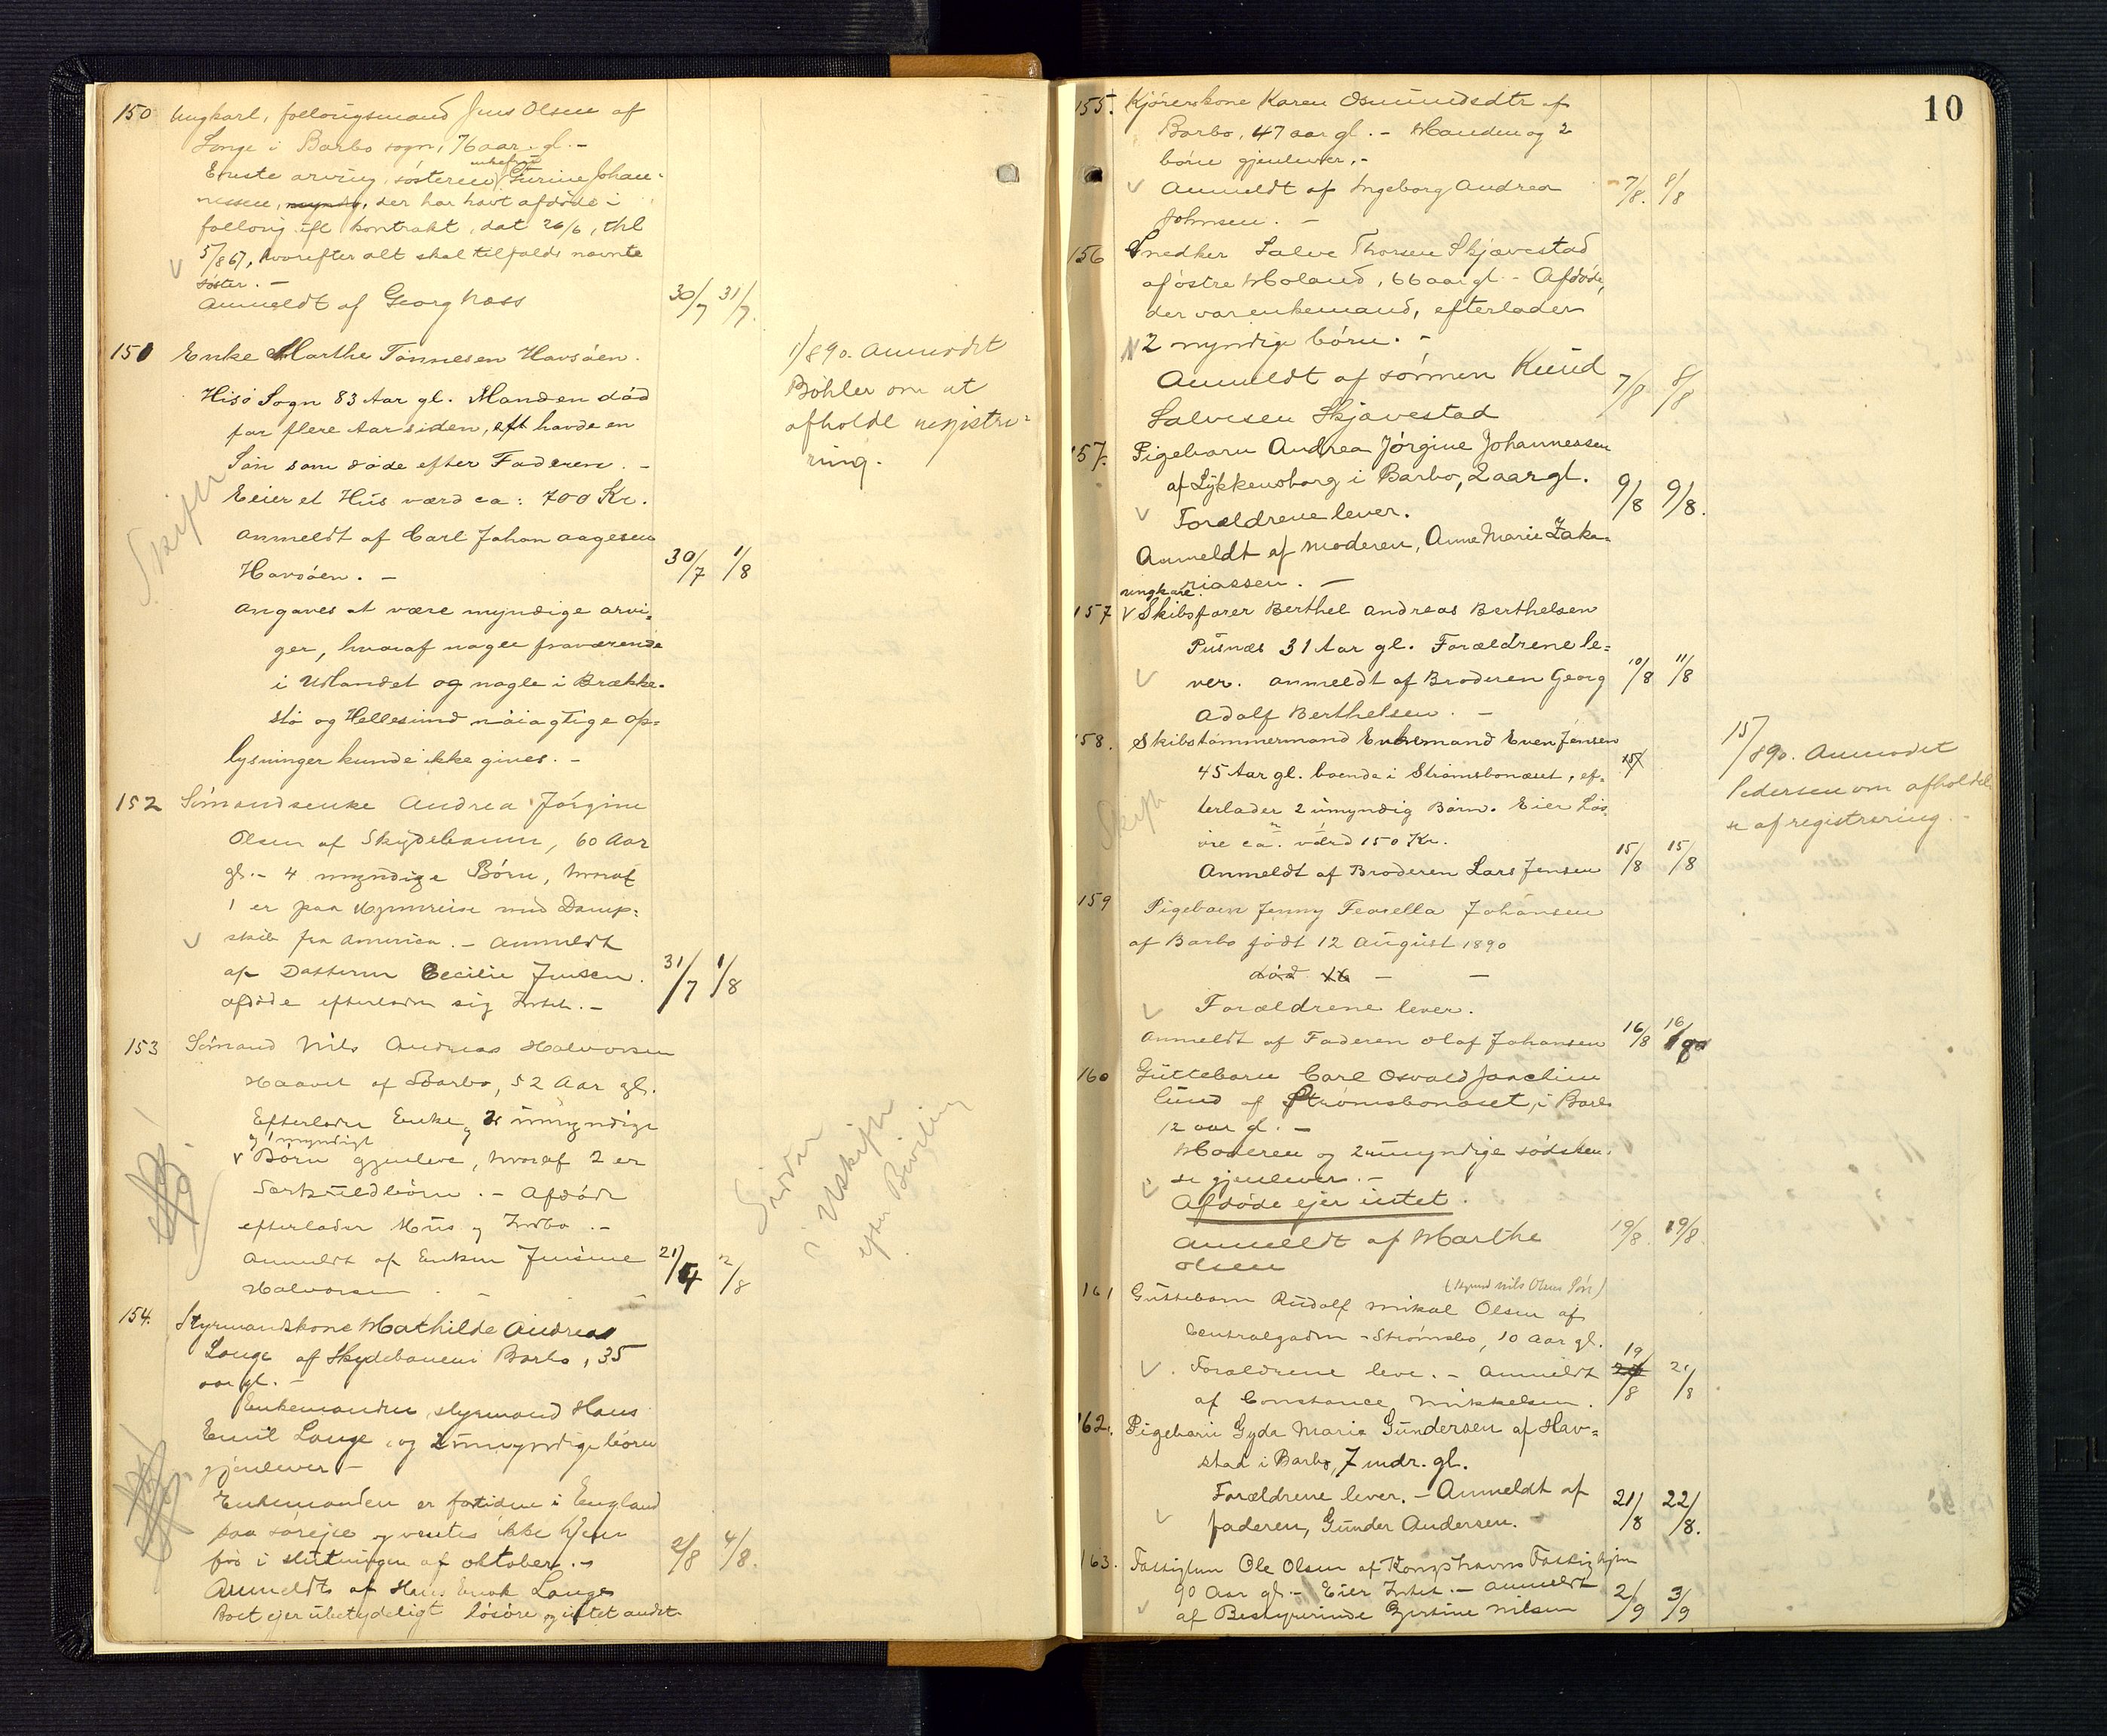 150 Ungkarl, follougsmand Jens Olsen af
Longe i Barbo sogn, 76 aar gl. –
Eneste arving, søsteren, Gurine Johan-
nessen, myndig, der har havt afdøde i
folloug ifl kontrakt, dat 26/6, thl
5/8 67, hvorefter alt skal tilfalde nævnte
søster. –
Anmeldt af Georg Næss 30/7 31/7.
151 Enke Marthe Tønnesen Havsøen.
Hisø Sogn 83 Aar gl. Manden død
for flere Aar siden, havde en
Søn som døde efter Faderen. –
Eier et Hus værd ca: 700 Kr.
Anmeldt af Carl Johan Aagesen
Havsøen. – 30/7 1/8
Skifte
Angaves at være myndige arvi-
ger, hvoraf nogle fraværende
i Udlandet og nogle i Brække-
stø og Hellesund nøiagtige op-
lysninger kunde ikke gives. –
1/8 90. Anmodet
Bøhler om at
afholde registre-
ring.
152 Sømandsenke Andrea Jørgine
Olsen af Skydebanen, 60 Aar
gl. – 4 myndige Børn, hvoraf
1 er paa Hjemreise med Damp-
skib fra America. – Anmeldt
af Datteren Cecilie Jensen. 31/7 1/8
afdøde efterlader sig Intet. –
153 Sømand Nils Andreas Halvorsen
Haavet af Barbo, 52 Aar gl.
Efterlader Enke og 2 umyndige
og 1 myndigt
v Børn gjenleve, hvoraf 2 er
Særkuldbørn. – Afdøde
efterlader Hus og Indbo. –
Anmeldt af Enken Jensine 21/7 2/8
Halvorsen. –
Sidder
i Uskifte
efter Bevilling
154. Styrmandskone Mathilde Andrea
Longe af Skydebanen i Barbo, 35
aar gl. –
Enkemanden, styrmand Hans
Emil Longe, og 2 umyndige børn
gjenlever –
Enkemanden er fortiden i England
paa søreise og ventes ikke hjem
før i slutningen af oktober. – 2/8 4/8.
Anmeldt af Hans Enok Longe
Boet ejer ubetydeligt løsøre og intet andet.
10
155. Kjørerskone Karen Osmundsdtr af
Barbo, 47 aar gl. – Manden og 2
børn gjenlever. –
v Anmeldt af Ingeborg Andrea 7/8. 8/8
Johnsen. –
156 Snedker Salve Thorsen Skjævestad
af østre Moland, 66 aar gl – Afdøde,
der var enkemand, efterlader
2 myndige børn. –
Anmeldt af sønnen Knud 7/8 8/8
Salvesen Skjævestad
157. Pigebarn Andrea Jørgine Johannessen
af Lykkensborg i Barbo, 2 aar gl. 9/8 9/8.
v Forældrene lever.
Anmeldt af moderen, Anne Marie Zaka-
riassen. –
ungkarl
157 v Skibsfører Berthel Andreas Berthelsen
Pusnæs 31 Aar gl. Forældrene le-
v ver. Anmeldt af Broderen Georg 10/8 11/8
Adolf Berthelsen. –
158. Skibstømmermand Enkemand Even Jensen
45 Aar gl. boende i Strømsbonæset, ef-
terlader 2 umyndig Børn. Eier Løs-
øre ca. værd 150 Kr.
Anmeldt af Broderen Lars Jensen 15/8 15/8
Skifte
15/8 90. Anmodet
Pedersen om afholdel-
se af registrering. –
159 Pigebarn Jenny Johansen
af Barbo født 12 August 1890
død 16 – –
v Forældrene lever.
Anmeldt af Faderen Olaf Johansen 16/8 16/8
160 Guttebarn Carl Osvald Joachim
Lund af Strømsbonæset, i Barbo
12 aar gl. –
Moderen og 2 umyndige sødsken-
v de gjenlever. –
Afdøde ejer intet.
Anmeldt af Marthe 19/8. 19/8.
Olsen
161 Guttebarn Rudolf Mikal Olsen af
(Sømd Nils Olsens Søn)
Centralgaden – Strømsbo, 10 Aar gl.
v. Forældrene leve. – Anmeldt 19/8 21/8
af Constance Mikkelsen.
162. Pigebarn Gyda Marie Gundersen af Hav-
stad i Barbo, 7 mdr. gl.
Forældrene lever. – Anmeldt af 21/8 22/8.
v faderen, Gunder Andersen. –
163. Fattiglem Ole Olsen af Kongshavns Fattighjem
90 Aar gl. – Eier Intet. – Anmeldt 2/9 3/9
v af Bestyrerinde Gurine Nilsen